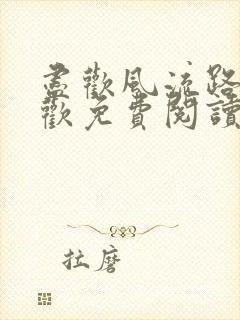 盡歡風流路
歡免費閱讀
拉磨